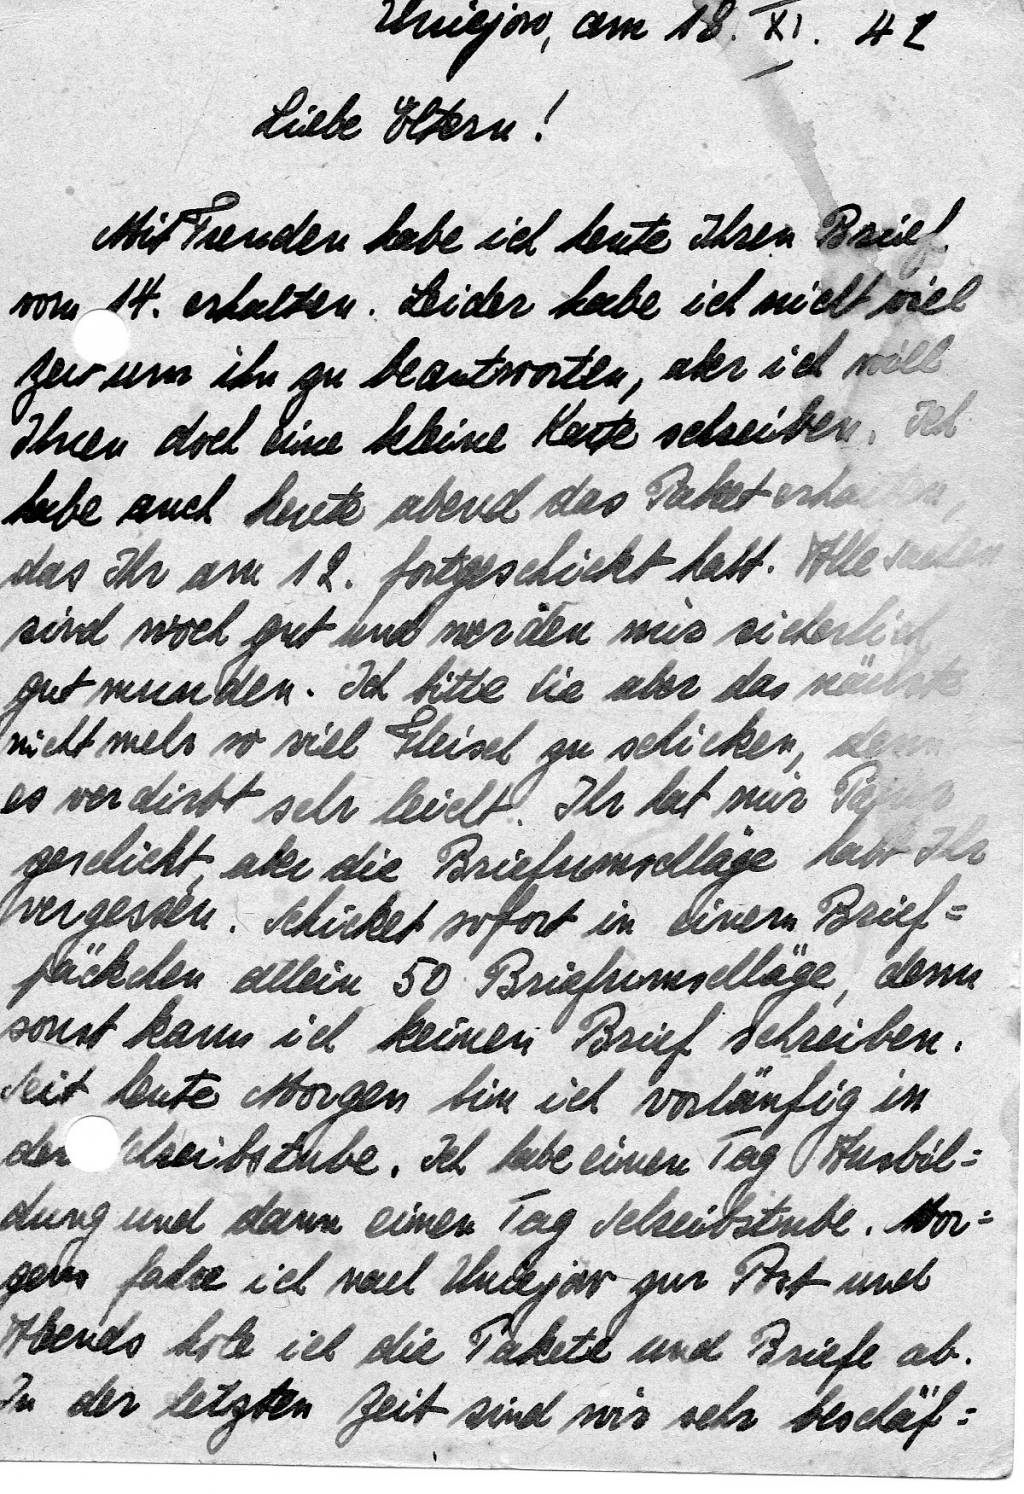 Uniejow, am 18. XI. 42
Liebe Eltern!
Mit Freuden habe ich heute Ihren Brief
vom 14. erhalten. Leider habe ich nicht viel
Zeit um ihn zu beantworten, aber ich will
Ihnen doch eine kleine Karte schreiben. Ich
habe auch heute abend das Paket erhalten,
das Ihr am 12. fortgeschickt habt. Alle Sachen
sind noch gut und werden mir sicherlich
gut munden. Ich bitte Sie aber das nächste
nicht mehr so viel Fleisch zu schicken, denn
es verdirbt sehr leicht. Ihr hat mir Papier
geschickt, aber die Briefumschläge habt Ihr
vergessen. Schicket sofort in einem Brief=
päckchen allein 50 Briefumschläge, denn
sonst kann ich keinen Brief schreiben.
Seit heute Morgen bin ich vorläufig in
der Schreibstube. Ich habe einen Tag Ausbil=
dung und dann einen Tag Schreibstube. Mor=
gens fahre ich nach Uniejow zur Post und
Abends hole ich die Pakete und Briefe ab.
In der letzten Zeit sind wir sehr beschäf=